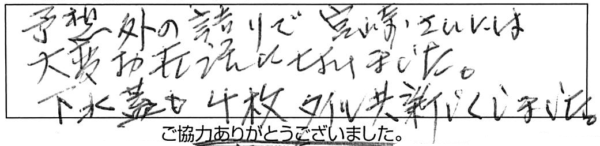 予想外の語りで宮崎さんには
大変お世話になりました。
下水蓋も4枚タイル共新しくしました。
ご協力ありがとうございました。